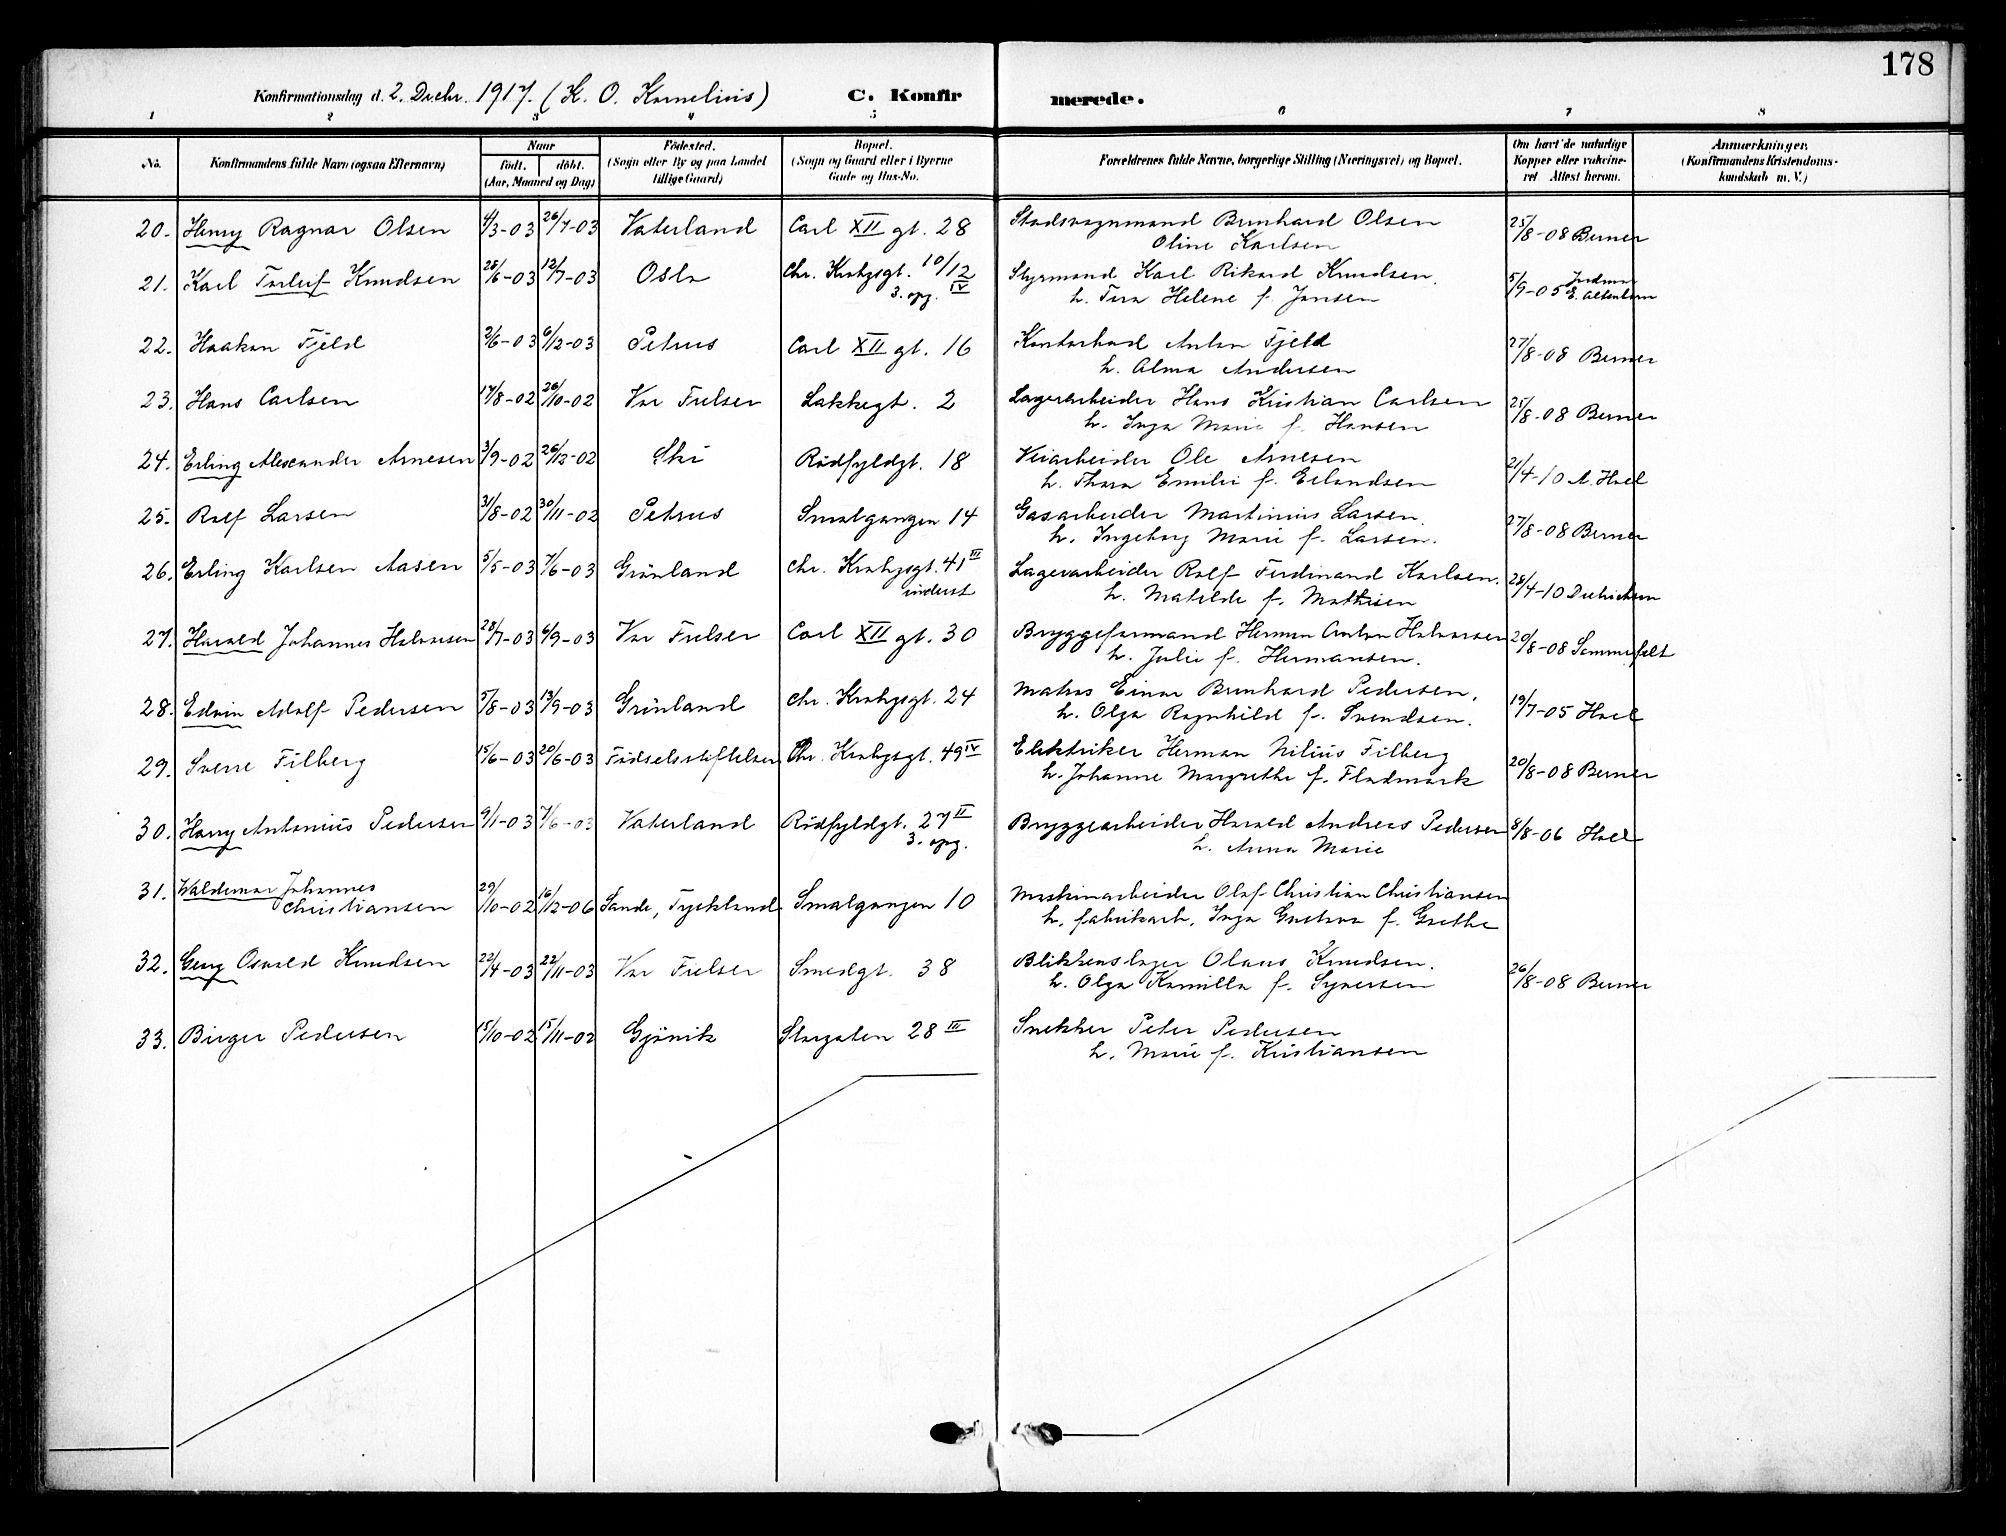 178
Konfirmationsdag d. 2. Decbr. 1917. (K. O. Kornelius) C. Konfirmerede.
1 2 3 4 5 6 7 8
No. Konfirmandens fulde Navn (ogsaa Efternavn) Naar født. døbt. (Aar, Maaned og Dag) Fødested. (Sogn eller By og paa Landet tillige Gaard) Bopæl. (Sogn og Gaard eller i Byerne Gade og Hus-No. Forældrenes fulde Navne, borgerlige Stilling (Næringsvei) og Bopæl. Om havt de naturlige Kopper eller vakcineret Attest herom. Anmærkninger. (Konfirmandens Kristendomskundskab m. V.)
20. Henry Ragnar Olsen 4/3-03 26/7-03 Vaterland Carl XII gt. 28 Stadsvognmand Bernhard Olsen 25/8-08 Berner
Oline Karlsen
21. Karl Torleif Knudsen 28/6-03 12/7-03 Oslo Chr. Krohgsgt. 10/12 Styrmand Karl Rikard Knudsen. 5/9-05
3. opg. IV h. Tira Helene f. Jansen
22. Haakon Fjeld 2/6-03 6/12-03 Petrus Carl XII gt. 16 Kontorbud Anton Fjeld 27/8-08 Berner
h. Alma Andersen
23. Hans Carlsen 17/8-02 26/10-02 Vor Frelser Lakkegt. 2 Lagerarbeider Hans Kristian Carlsen 25/8-08 Berner
h. Inga Marie f. Hansen
24. Erling Alexander Arnesen 3/9-02 26/12-02 Ski Rödfyldgt. 18 Veiarbeider Ole Arnesen 21/4-10 A. Hoel
h. Thora Emilie f. Erlandsen
25. Rolf Larsen 31/8-02 30/11-02 Petrus Smalgangen 14 Gasarbeider Martinius Larsen. 27/8-08 Berner
h. Ingeborg Marie f. Larsen.
26. Erling Karlsen Aasen 5/5-03 7/6-03 Grönland Chr. Krohgsgt. 41 III Lagerarbeider Rolf Ferdinand Karlsen. 28/4-10 Dietrichson
inderst h. Matilde f. Mathisen
27. Harald Johannes Halvorsen 28/7-03 6/9-03 Vor Frelser Carl XII gt. 30 Bryggeformand Herman Anton Halvorsen 20/8-08 Sommerfelt
h. Julie f. Hermansen.
28. Edvin Adolf Pedersen 5/8-03 13/9-03 Grönland Chr. Krohgsgt. 24 Matros Einar Bernhard Pedersen. 19/7-05 Hoel
h. Olga Ragnhild f. Svendsen.
29. Sverre Filberg 15/6-03 20/6-03 Födselsstiftelsen Chr. Krohgsgt. 49 IV Elektriker Herman Nilius Filberg 20/8-08 Berner
h. Johanne Margrethe f. Fladmark
30. Harry Antonius Pedersen 9/1-03 7/6-03 Vaterland Rödfyldgt. 27 II Bryggearbeider Harald Andreas Pedersen 8/8-06 Hoel
3. opg. h. Anna Marie
31. Waldemar Johannes 29/10-02 16/12-06 Sande, Tyskland Smalgangen 10 Maskinarbeider Olaf Christian Christiansen
Christiansen h. fabrikarb. Inga Gustava f. Grethe
32. Georg Osvald Knudsen 22/4-03 22/11-03 Vor Frelser Smedgt. 38 Blikkenslager Olaus Knudsen. 26/8-08 Berner
h. Olga Kamilla f. Syversen
33. Birger Pedersen 15/10-02 15/11-02 Gjövik Storgaten 28 III Snekker Peter Pedersen
h. Marie f. Kristiansen